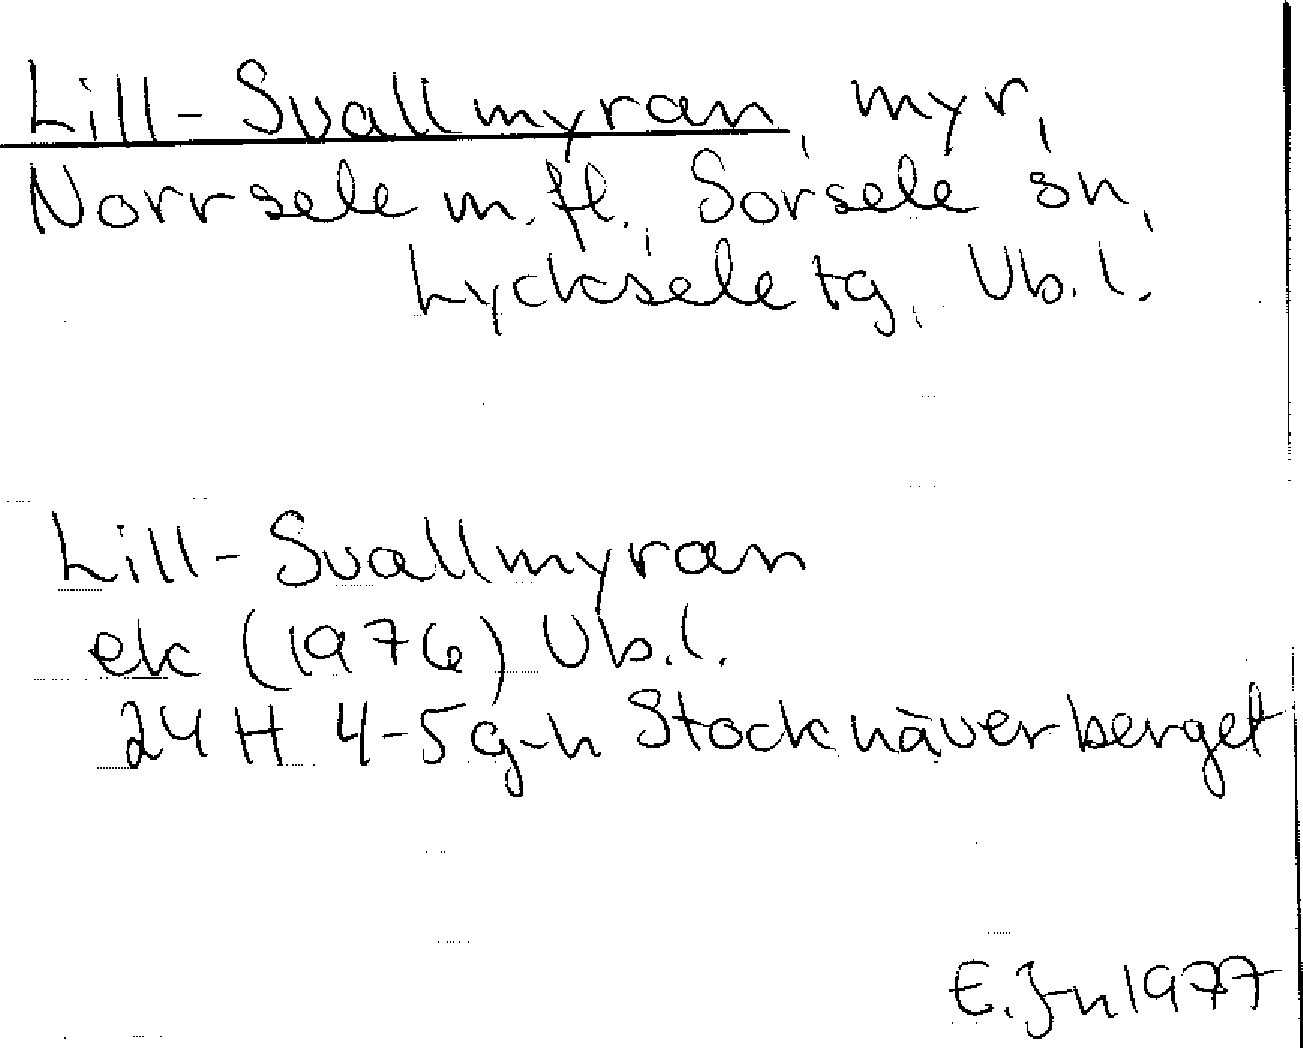 Lill-Svallmyran, myr,
Norrsele m.fl., Sorsele sn,
Lycksele tg, Vb.l.
Lill-Svallmyran
ek (1976) Vb.l.
24 H 4-5 g-h Stocknäverberget
E. Jn 1977